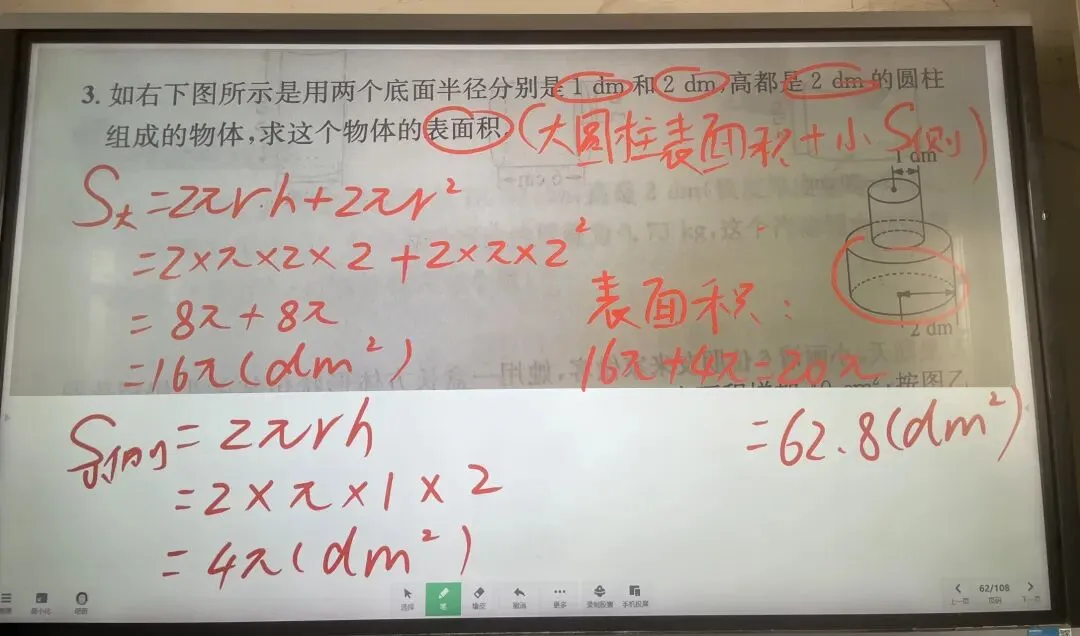 3. 如右下图所示是用两个底面半径分别是 1 dm 和 2 dm,高都是 2 dm 的圆柱
组成的物体,求这个物体的表面积.
(大圆柱表面积+小S侧)
1 dm
2 dm
S大=2πr·h+2πr²
=2×π×2×2+2×π×2²
=8π+8π
=16π(dm²)
表面积:
16π+4π=20π
=62.8(dm²)
S小侧=2πrh
=2×π×1×2
=4π(dm²)
选择
笔
橡皮
撤消
更多
录制胶囊
手机投屏
62/108
上一页
页码
下一页